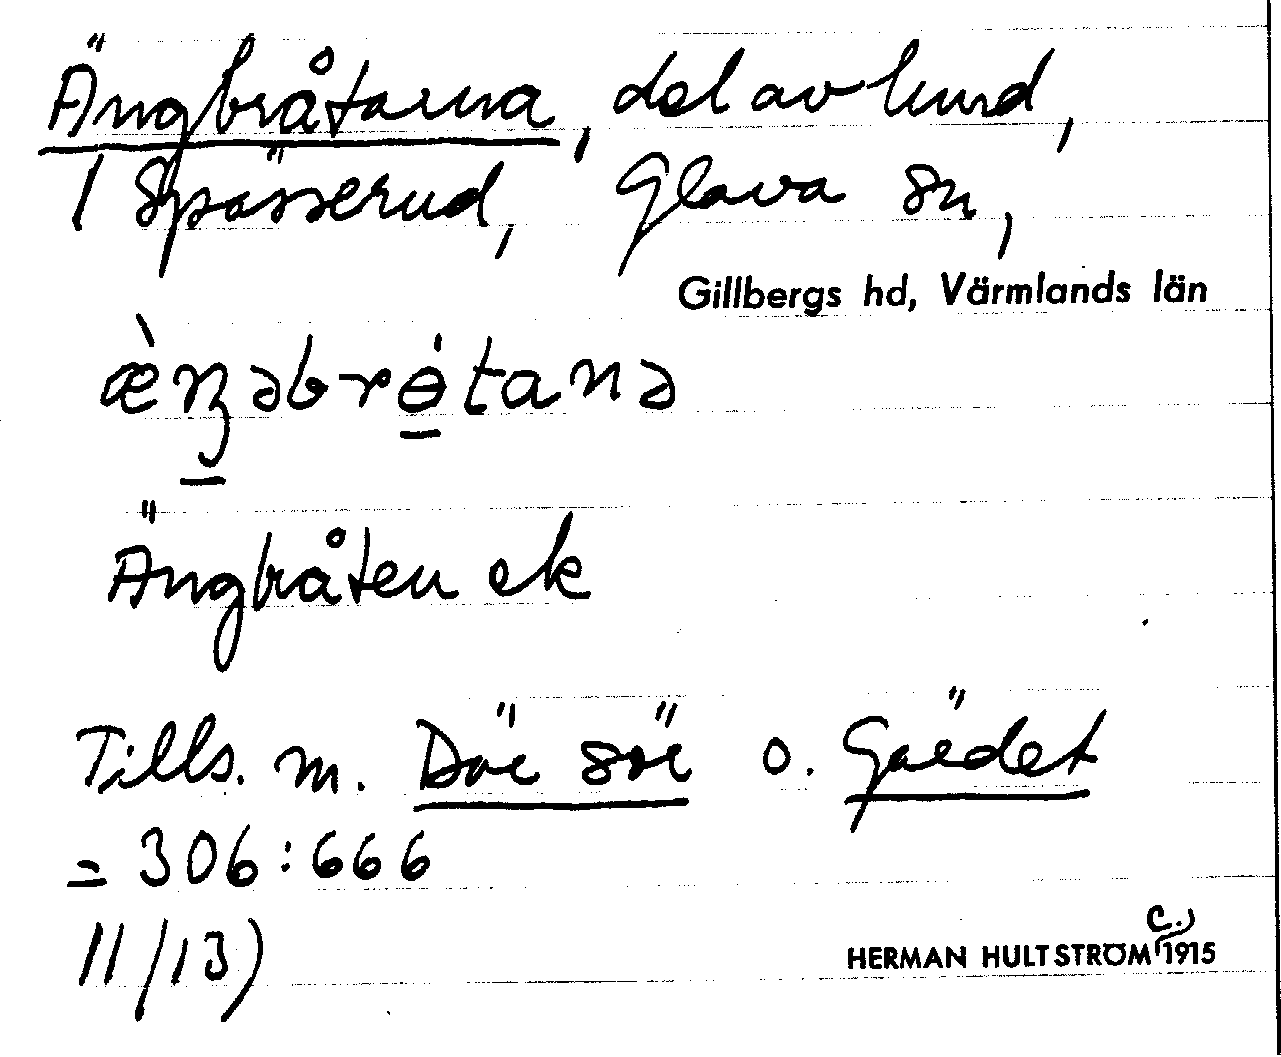 Ängbråtarna, del av lund,
1 Spässerud, Glava sn,
Gillbergs hd, Värmlands län
æ̀ŋəbrɵ́tanə
Ängbråten ek
Tills. m. Döe söe o. Gäedet
= 306:666
11/13)
HERMAN HULTSTRÖM (c.) 1915